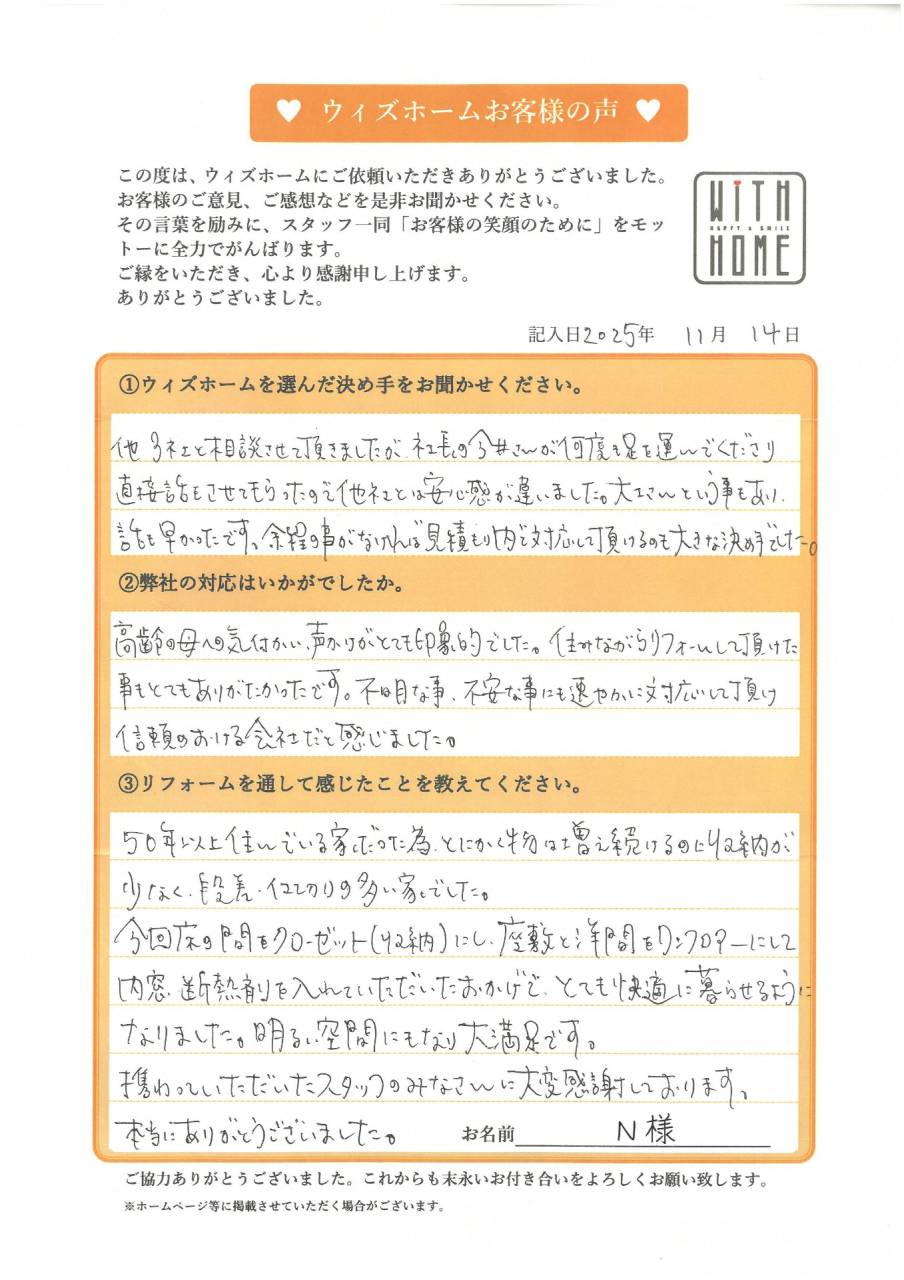 ♥ ウィズホームお客様の声 ♥
この度は、ウィズホームにご依頼いただきありがとうございました。
お客様のご意見、ご感想などを是非お聞かせください。
その言葉を励みに、スタッフ一同「お客様の笑顔のために」をモッ
トーに全力でがんばります。
ご縁をいただき、心より感謝申し上げます。
ありがとうございました。
WiTH
HAPPY & SMILE
HOME
記入日2025年 11月 14日
①ウィズホームを選んだ決め手をお聞かせください。
他3社と相談させて頂きましたが、社長の今井さんが何度も足を運んでくださり
直接話をさせてもらったので他社とは安心感が違いました。大工さんという事もあり、
話も早かったです。余程の事がなければ見積もり内で対応して頂けるのも大きな決め手でした。
②弊社の対応はいかがでしたか。
高齢の母への気付かい、声かけがとても印象的でした。住みながらリフォームして頂けた
事もとてもありがたかったです。不明な事、不安な事にも速やかに対応して頂け
信頼のおける会社だと感じました。
③リフォームを通して感じたことを教えてください。
50年以上住んでいる家だった為、とにかく物は増え続けるのに収納が
少なく、段差・仕切りの多い家でした。
今回床の間をクローゼット(収納)にし、座敷と洋間をワンフロアーにして
内窓、断熱剤を入れていただいたおかげで、とても快適に暮らせるように
なりました。明るい空間にもなり大満足です。
携わっていただいたスタッフのみなさんに大変感謝しております。
本当にありがとうございました。
お名前 N様
ご協力ありがとうございました。これからも末永いお付き合いをよろしくお願い致します。
※ホームページ等に掲載させていただく場合がございます。